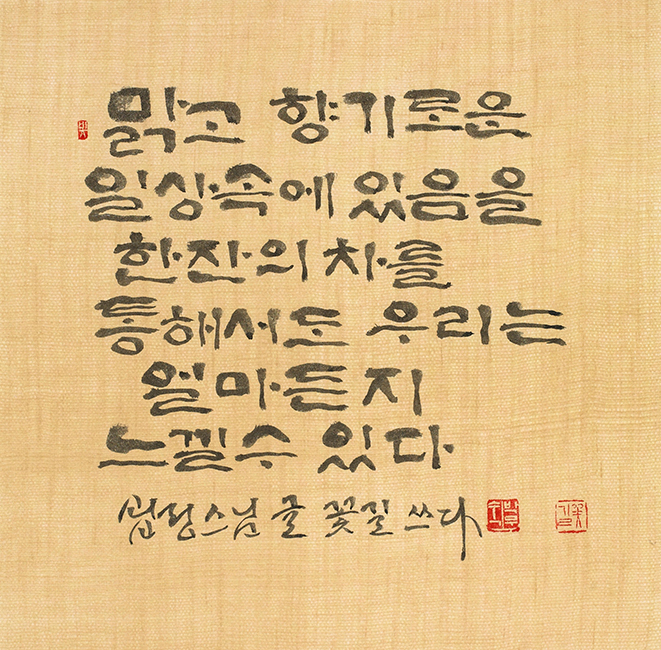 맑고 향기로운
일상속에 있음을
한잔의 차를
통해서도 우리는
얼마든지
느낄수 있다
법정스님 글 꽃길 쓰다